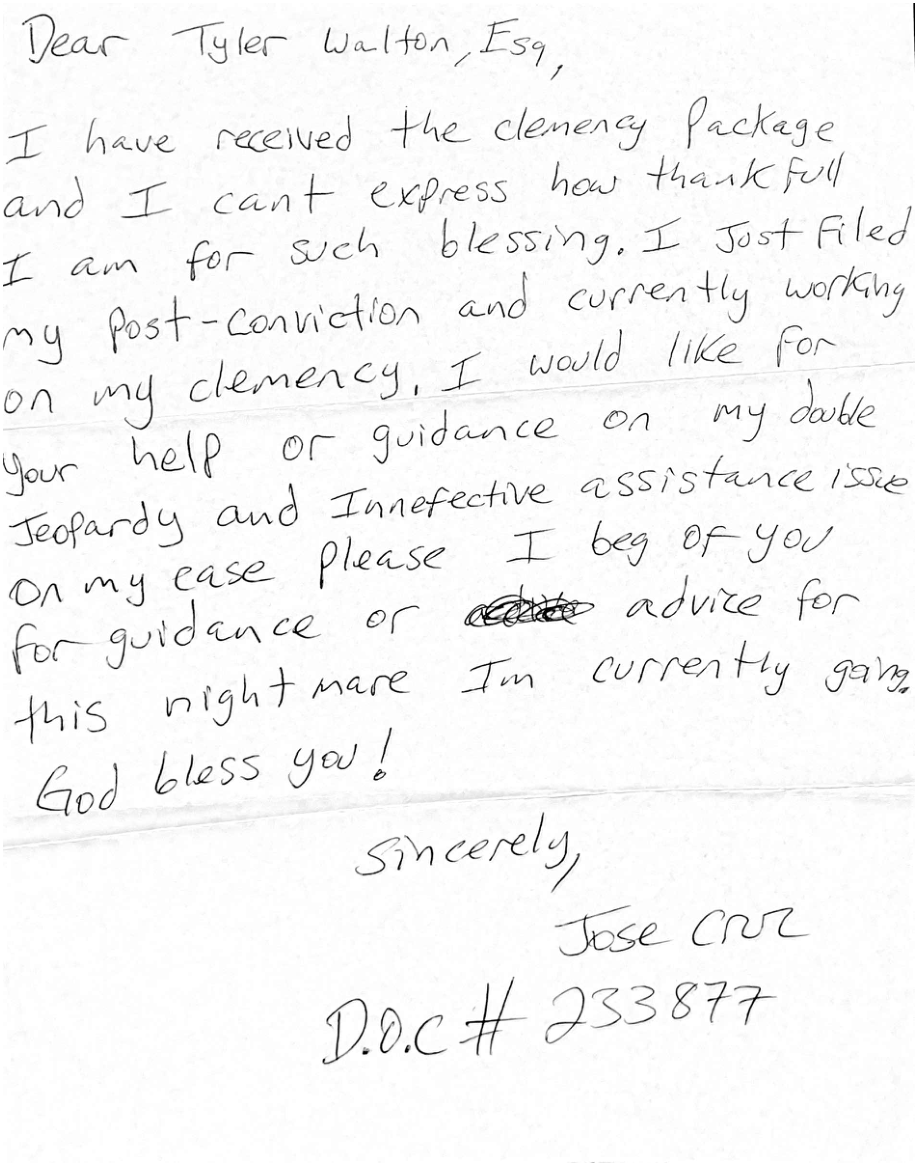 Dear Tyler Walton, Esq,
I have received the clemency Package
and I cant express how thankfull
I am for such blessing. I Just Filed
my Post-Conviction and currently working
on my clemency. I would like for
your help or guidance on my double
Jeopardy and Innefective assistance issue
on my case Please I beg of you
for guidance or advice for
this nightmare Im currently going.
God bless you!
Sincerely,
Jose Cruz
D.O.C # 233877